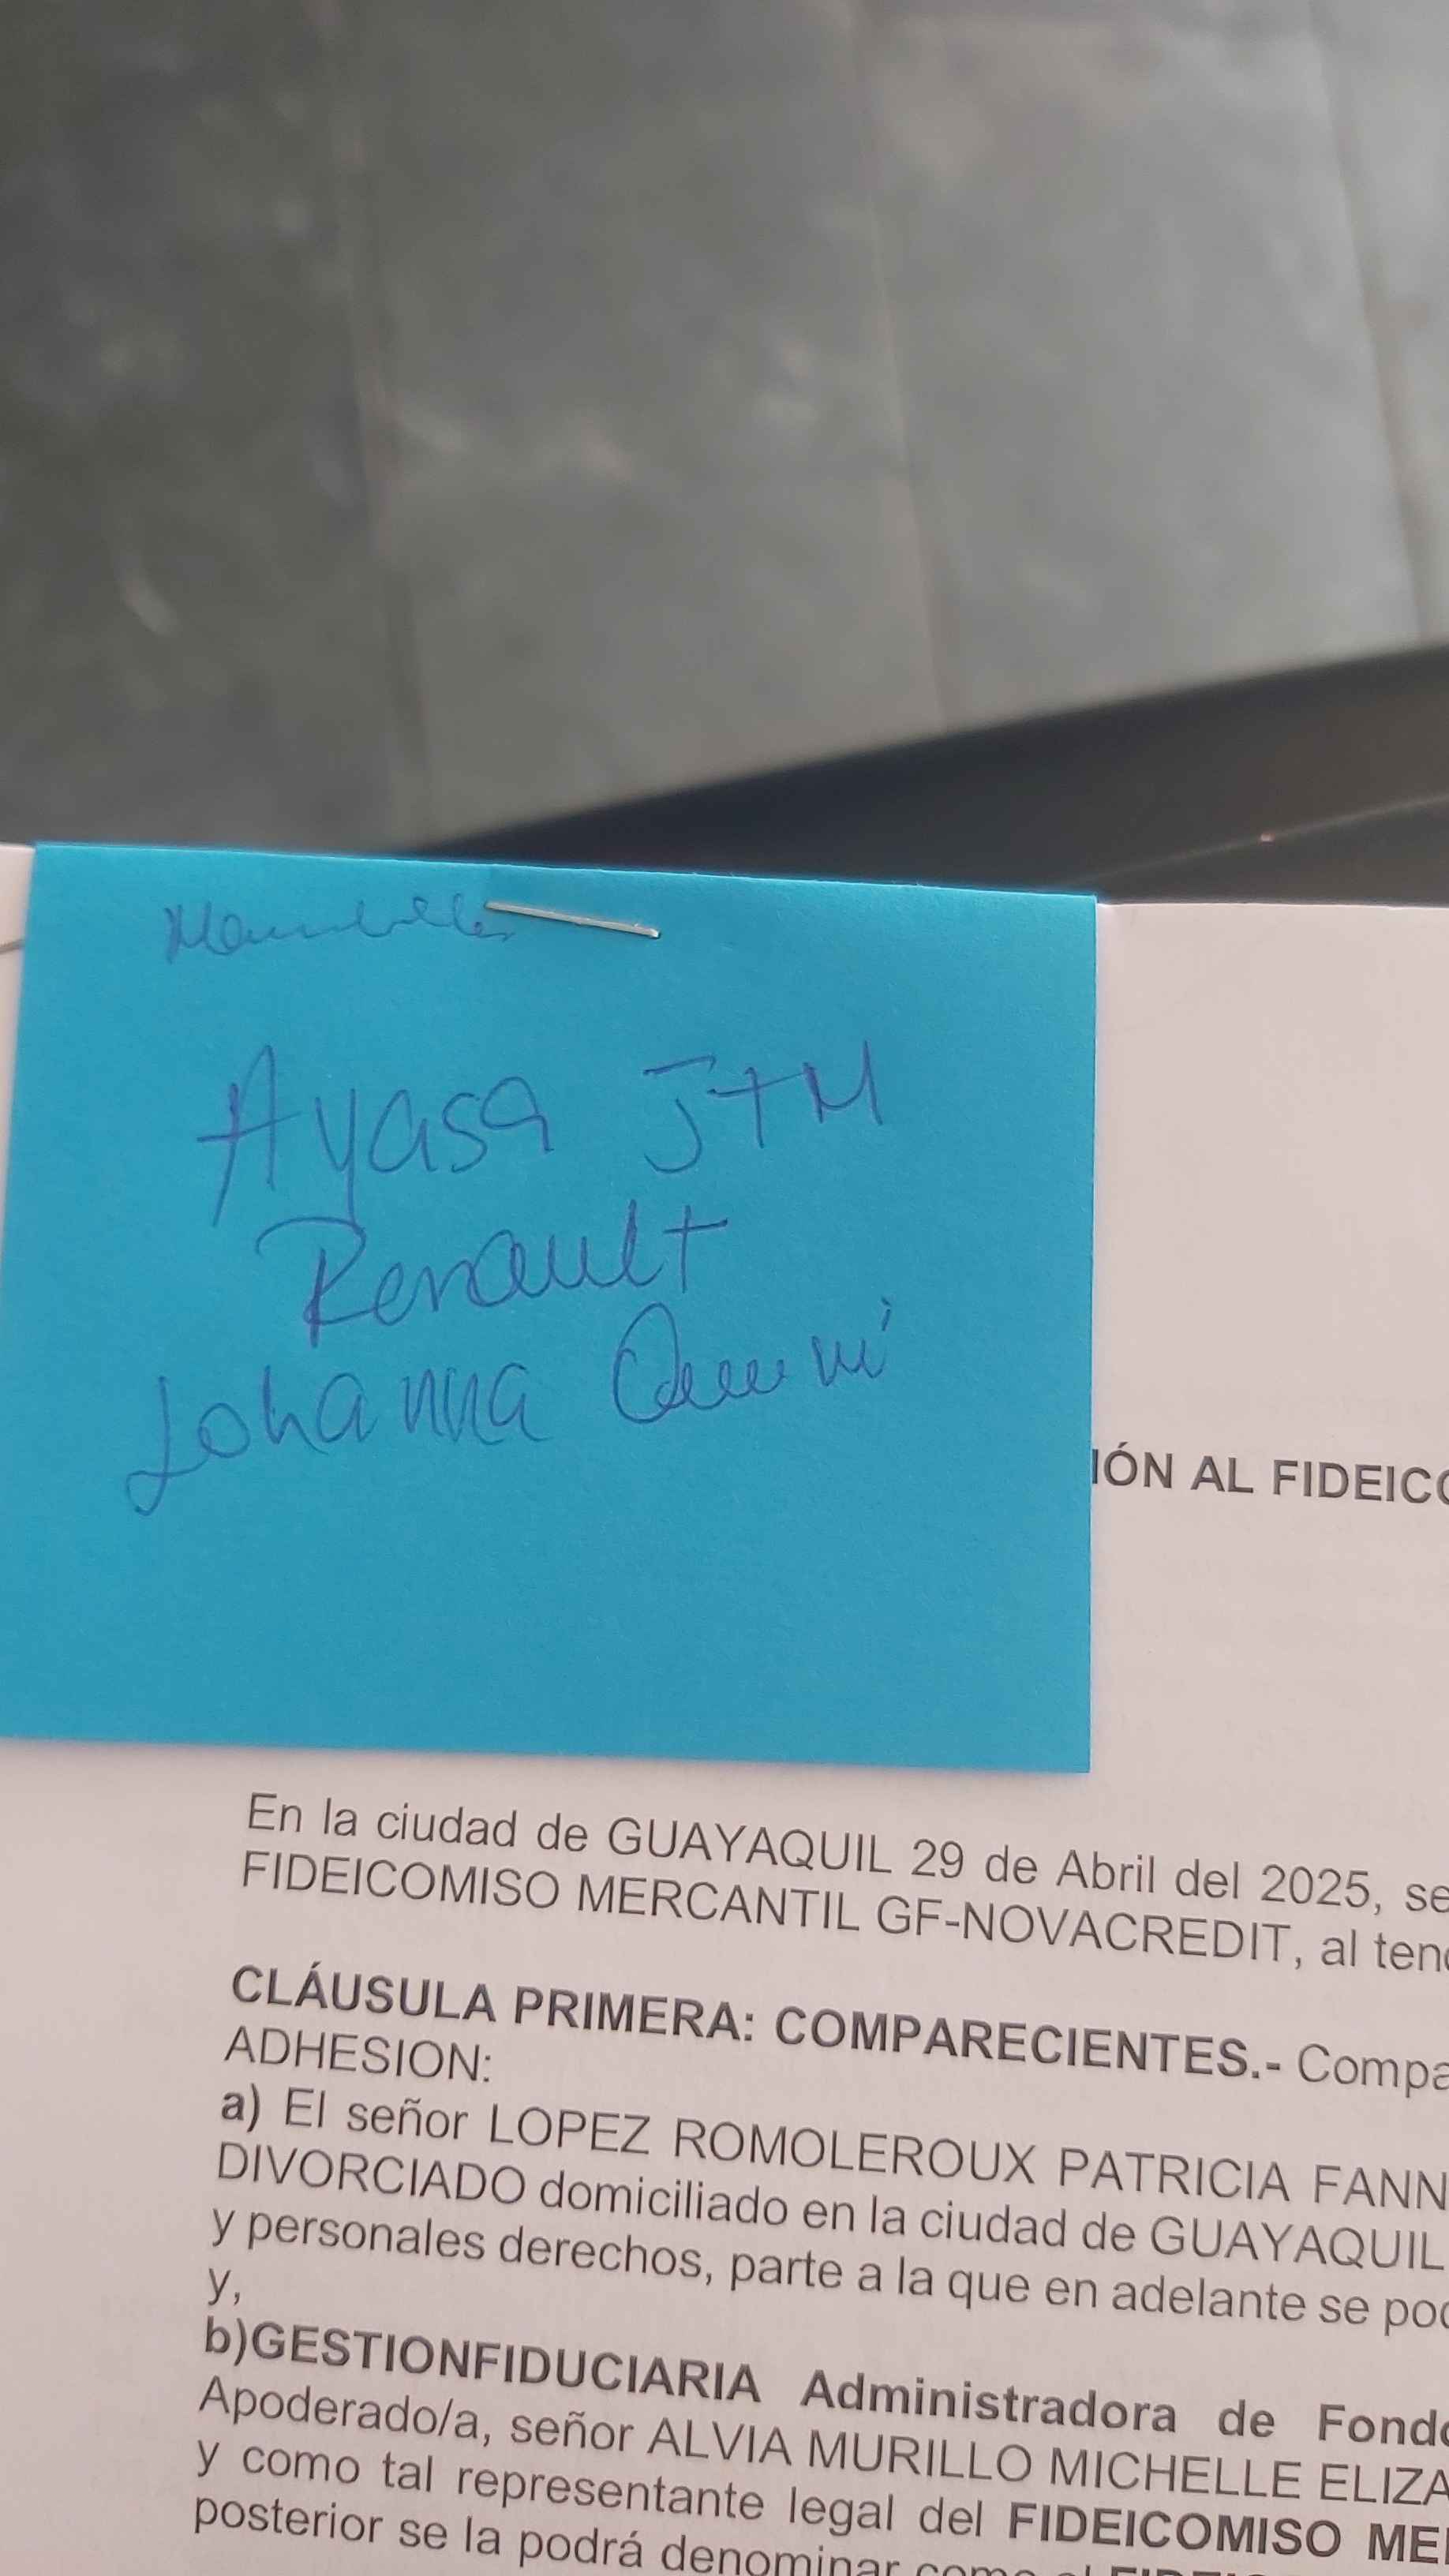 Ayasa JTM
Renault
Johanna
IÓN AL FIDEICO
En la ciudad de GUAYAQUIL 29 de Abril del 2025, se
FIDEICOMISO MERCANTIL GF-NOVACREDIT, al teno
CLÁUSULA PRIMERA: COMPARECIENTES.- Compa
ADHESION:
a) El señor LOPEZ ROMOLEROUX PATRICIA FANN
DIVORCIADO domiciliado en la ciudad de GUAYAQUIL
y personales derechos, parte a la que en adelante se pod
y,
b)GESTIONFIDUCIARIA Administradora de Fondo
Apoderado/a, señor ALVIA MURILLO MICHELLE ELIZA
y como tal representante legal del FIDEICOMISO MER
posterior se la podrá denominar como